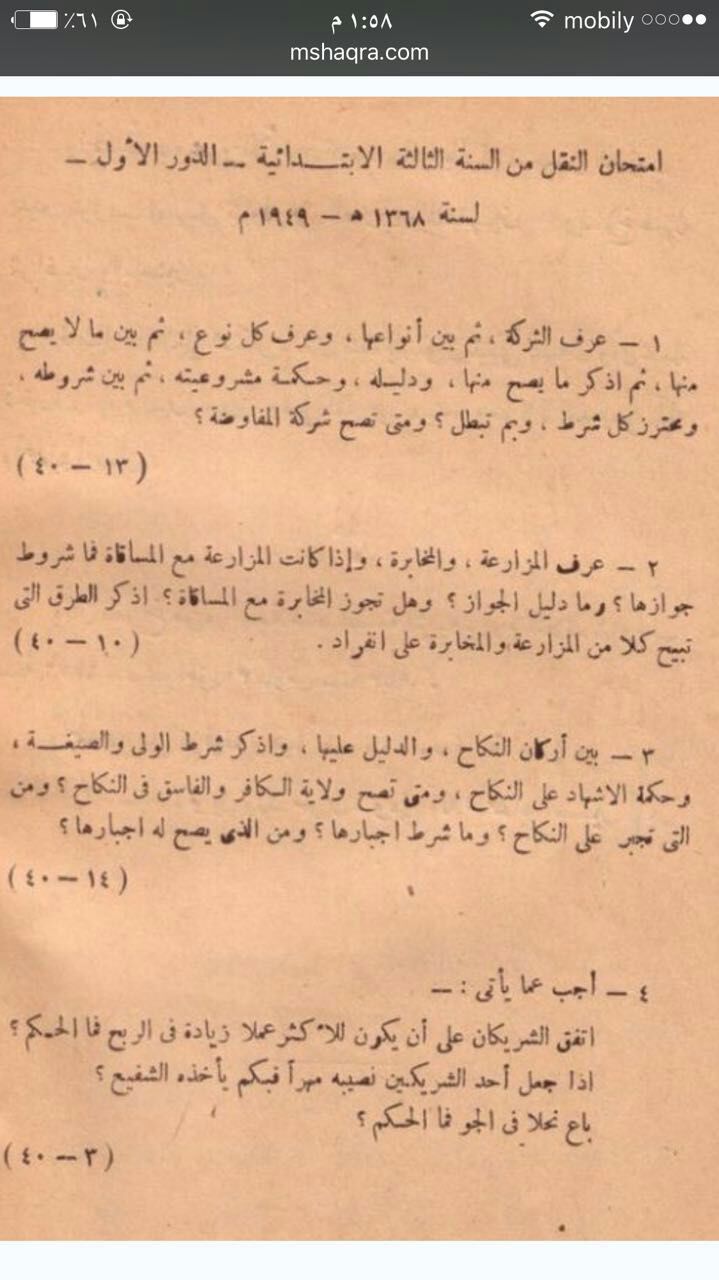 ٪٦١ ١:٥٨ م mobily
mshaqra.com
امتحان النقل من السنة الثالثة الابتدائية — الدور الأول —
لسنة ١٣٦٨ ه — ١٩٤٩ م
١ — عرف الشركة ، ثم بين أنواعها ، وعرف كل نوع ، ثم بين ما لا يصح
منها ، ثم اذكر ما يصح منها ، ودليله ، وحكمة مشروعيته ، ثم بين شروطه ،
ومحترز كل شرط ، وبم تبطل ؟ ومتى تصح شركة المفاوضة ؟
( ١٣ — ٤٠ )
٢ — عرف المزارعة ، والمخابرة ، وإذا كانت المزارعة مع المساقاة فما شروط
جوازها ؟ وما دليل الجواز ؟ وهل تجوز المخابرة مع المساقاة ؟ اذكر الطرق التى
تبيح كلا من المزارعة والمخابرة على انفراد . ( ١٠ — ٤٠ )
٣ — بين أركان النكاح ، والدليل عليها ، واذكر شرط الولى والصيغة ،
وحكمة الاشهاد على النكاح ، ومتى تصح ولاية الكافر والفاسق فى النكاح ؟ ومن
التى تجبر على النكاح ؟ وما شرط اجبارها ؟ ومن الذى يصح له اجبارها ؟
( ١٤ — ٤٠ )
٤ — أجب عما يأتى : —
اتفق الشريكان على أن يكون للأكثر عملا زيادة فى الربح فما الحكم ؟
اذا جعل أحد الشريكين نصيبه مهرأ فبكم يأخذه الشفيع ؟
باع نحلا فى الجو فما الحكم ؟
( ٣ — ٤٠ )